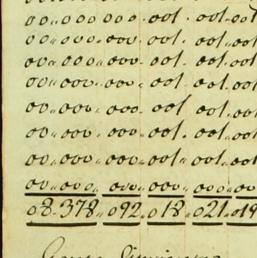 00..000 000.001.001.001
00..000.000.001.001..001
00..000..000..001.001..001
00..000..000..001.001.001
00..000..000.001.001.001
00..000..000.001.001..001
00..000..000..001..001..001
00..000..000..000..000..00
08.378..092.018.021.019